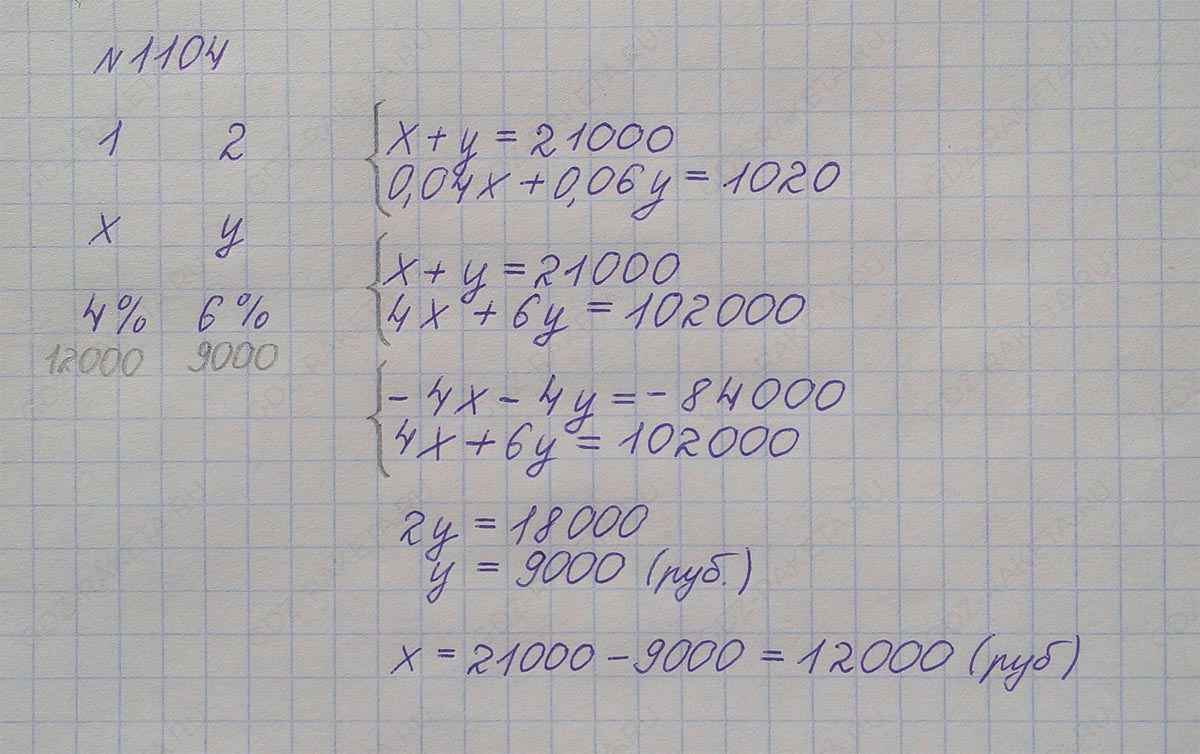 №1104
1 2
x y
4% 6%
12000 9000
x + y = 21000
0,04x + 0,06y = 1020
x + y = 21000
4x + 6y = 102000
- 4x - 4y = - 84000
4x + 6y = 102000
2y = 18000
y = 9000 (руб.)
x = 21000 - 9000 = 12000 (руб)
GDZ-RAKETA.RU